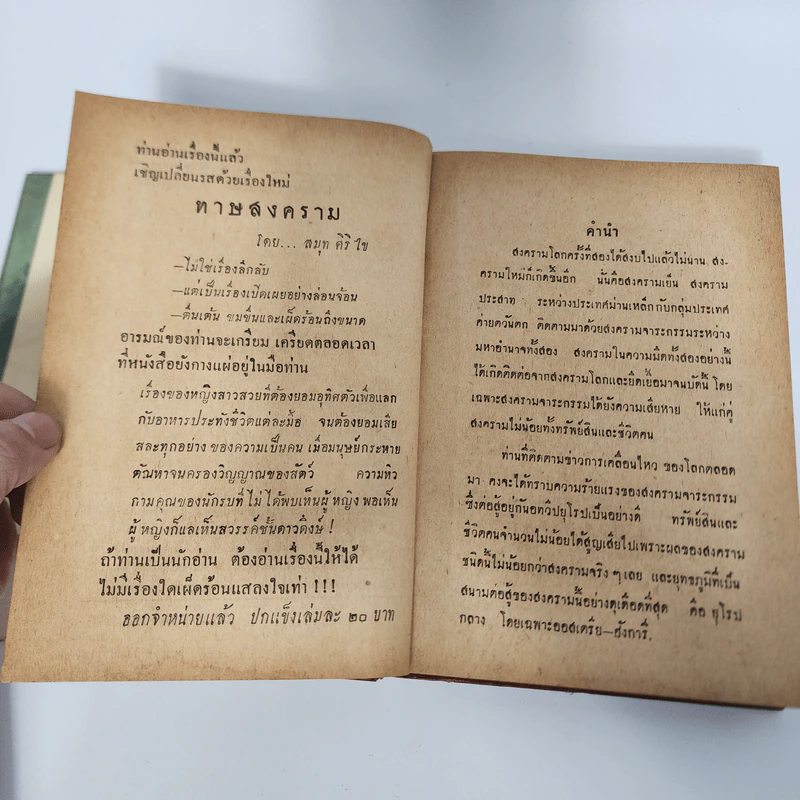 ท่านอ่านเรื่องนี้แล้ว
เชิญเปลี่ยนรสด้วยเรื่องใหม่
ทาษสงคราม
โดย... สมุท ศิริ ไข
—ไม่ใช่เรื่องลึกลับ
—แต่เป็นเรื่องเปิดเผยอย่างล่อนจ้อน
—ตื่นเต้น ขมขื่นและเผ็ดร้อนถึงขนาด
อารมณ์ของท่านจะเกรียม เครียดตลอดเวลา
ที่หนังสือยังกางแผ่อยู่ในมือท่าน
เรื่องของหญิงสาวสวยที่ต้องยอมอุทิศตัวเพื่อแลก
กับอาหารประทังชีวิตแต่ละมื้อ จนต้องยอมเสีย
สละทุกอย่าง ของความเป็นคน เมื่อมนุษย์กระหาย
ตัณหาจนครองวิญญาณของสัตว์ ความหิว
กามคุณของนักรบที่ ไม่ ได้พบเห็นผู้ หญิง พอเห็น
ผู้ หญิงก็แลเห็นสวรรค์ชั้นดาวดึงษ์ !
ถ้าท่านเป็นนักอ่าน ต้องอ่านเรื่องนี้ให้ได้
ไม่มีเรื่องใดเผ็ดร้อนแสลงใจเท่า !!!
ออกจำหน่ายแล้ว ปกแข็งเล่มละ ๒๐ บาท
คำนำ
สงครามโลกครั้งที่สองได้สงบไปแล้วไม่นาน สง-
ครามใหม่ก็เกิดขึ้นอีก นั่นคือสงครามเย็น สงคราม
ประสาท ระหว่างประเทศม่านเหล็ก กับกลุ่มประเทศ
ค่ายตวันตก ติดตามมาด้วยสงครามจาระกรรมระหว่าง
มหาอำนาจทั้งสอง สงครามในความมืดทั้งสองอย่างนี้
ได้เกิดติดต่อจากสงครามโลกและยืดเยื้อมาจนบัดนี้ โดย
เฉพาะสงครามจาระกรรมได้ยังความเสียหาย ให้แก่คู่
สงครามไม่น้อยทั้งทรัพย์สินและชีวิตคน
ท่านที่ติดตามข่าวการเคลื่อนไหว ของโลกตลอด
มา คงจะได้ทราบความร้ายแรงของสงครามจาระกรรม
ซึ่งต่อสู้อยู่กันอทวิปยุโรปเป็นอย่างดี ทรัพย์สินและ
ชีวิตคนจำนวนไม่น้อยได้สูญเสียไปเพราะผลของสงคราม
ชนิดนี้ไม่น้อยกว่าสงครามจริง ๆ เลย และยุทธภูมิที่เป็น
สนามต่อสู้ของสงครามนี้อย่างดุเดือดที่สุด คือ ยุโรป
กลาง โดยเฉพาะออสเตรีย—ฮังการี.